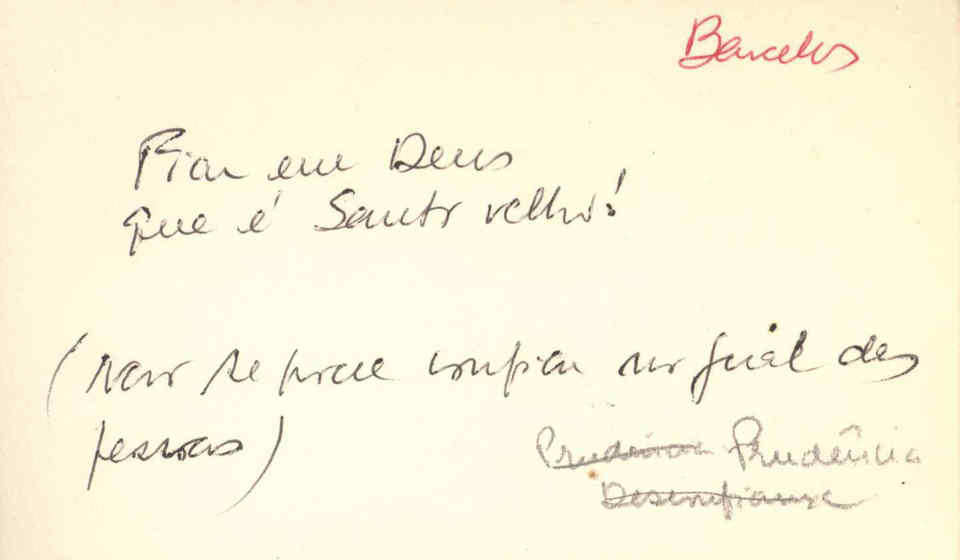 Barcelos
Fiar em Deus
que é Santo velho!
(Não se pode confiar no geral das
pessoas)
Prudência Prudência
Desconfiança